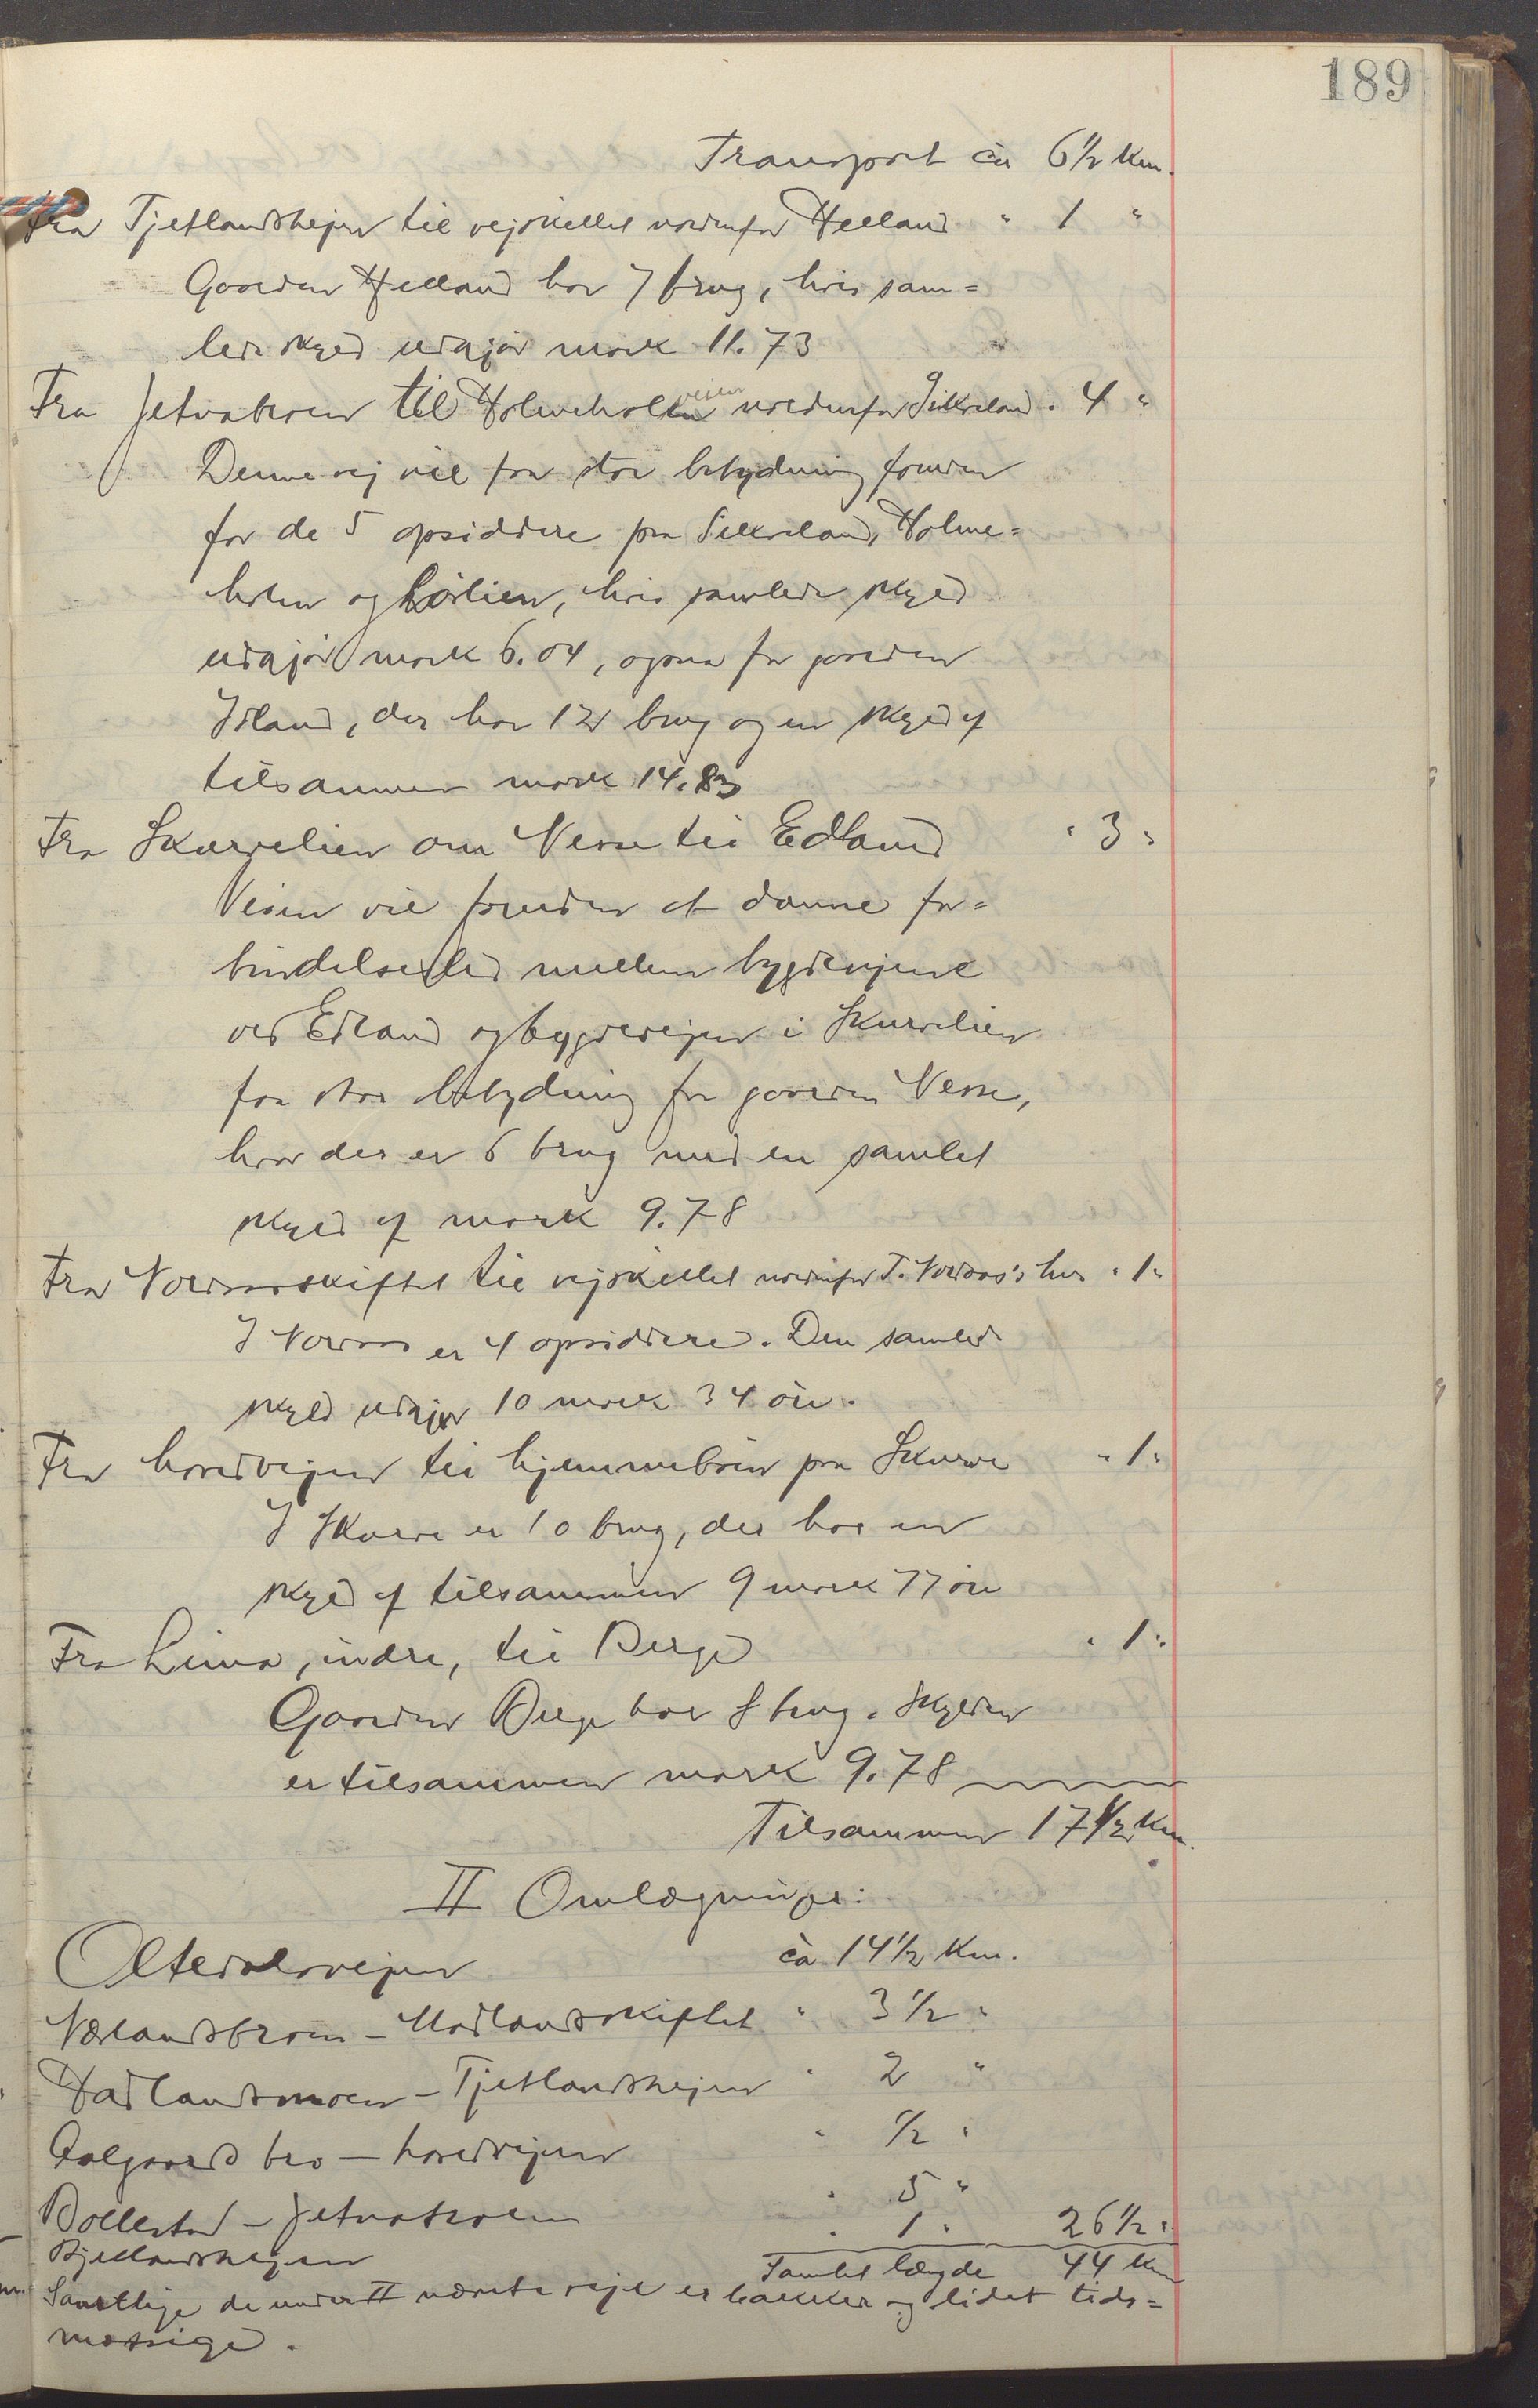 189
Transport ca 6 1/2 km.
Fra Tjetlandshejen til vejskellet nordenfor Helland " 1 "
Gaarden Helland har 7 brug, hvis sam=
lede skyld udgjør mark 11.73
Fra Jetvatroen til Holmeholenveien nordenfor Sikveland " 4 "
Denne vej vil faa stor betydning foruden
for de 5 opsiddere paa Sikveland, Holme=
holen og Lørlien, hvis samlede skyld
udgjør mark 6.04, ogsaa for gaarden
Idland, der har 12 brug og en skyld af
tilsammen mark 14.83
Fra Skurvelien om Nesse til Edland " 3 "
Veien vil foruden at danne for=
bindelsesled mellem bygdevejene
ved Edland og bygdevejen i Skurvelien
faa stor betydning for gaarden Nesse,
hvor der er 6 brug med en samlet
skyld af mark 9.78
Fra Nordaasskiftet til vejskellet nordenfor T. Nordaas's hus " 1 "
I Nordaas er 4 opsiddere. Den samlede
skyld udgjør 10 mark 34 øre.
Fra hovedvejen til hjemmebøen paa Skurve " 1 "
I Skurve er 10 brug, der har en
skyld af tilsammen 9 mark 77 øre
Fra Lima, indre, til Berge " 1 "
Gaarden Berge har 8 brug. Skylden
er tilsammen mark 9.78
Tilsammen 17 1/2 km.
II Omlægninger:
Oltedalsvejen ca 14 1/2 km.
Nælandsbroen - Madlandsskiftet " 3 1/2 "
Hadlandsmoen - Tjetlandshejen " 2 "
Aalgaards bro - hovedvejen " 1/2 "
Bollestad - Jetvatroen " 5 "
Bjellandshejen " 1 " 26 1/2 "
Samlet længde 44 km
Samtlige de under II nævnte veje er bakker og lidet tids=
mæssige.